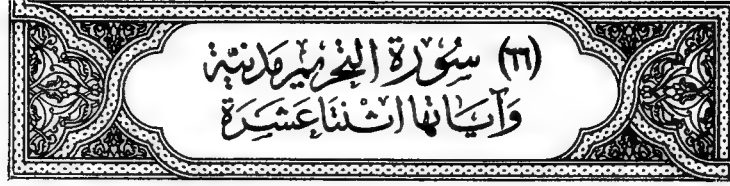 (٦٦) سُورَةُ التَّحْرِيمِ مَدَنِيَّة
وَآيَاتُهَا اثْنَتَا عَشَرَة